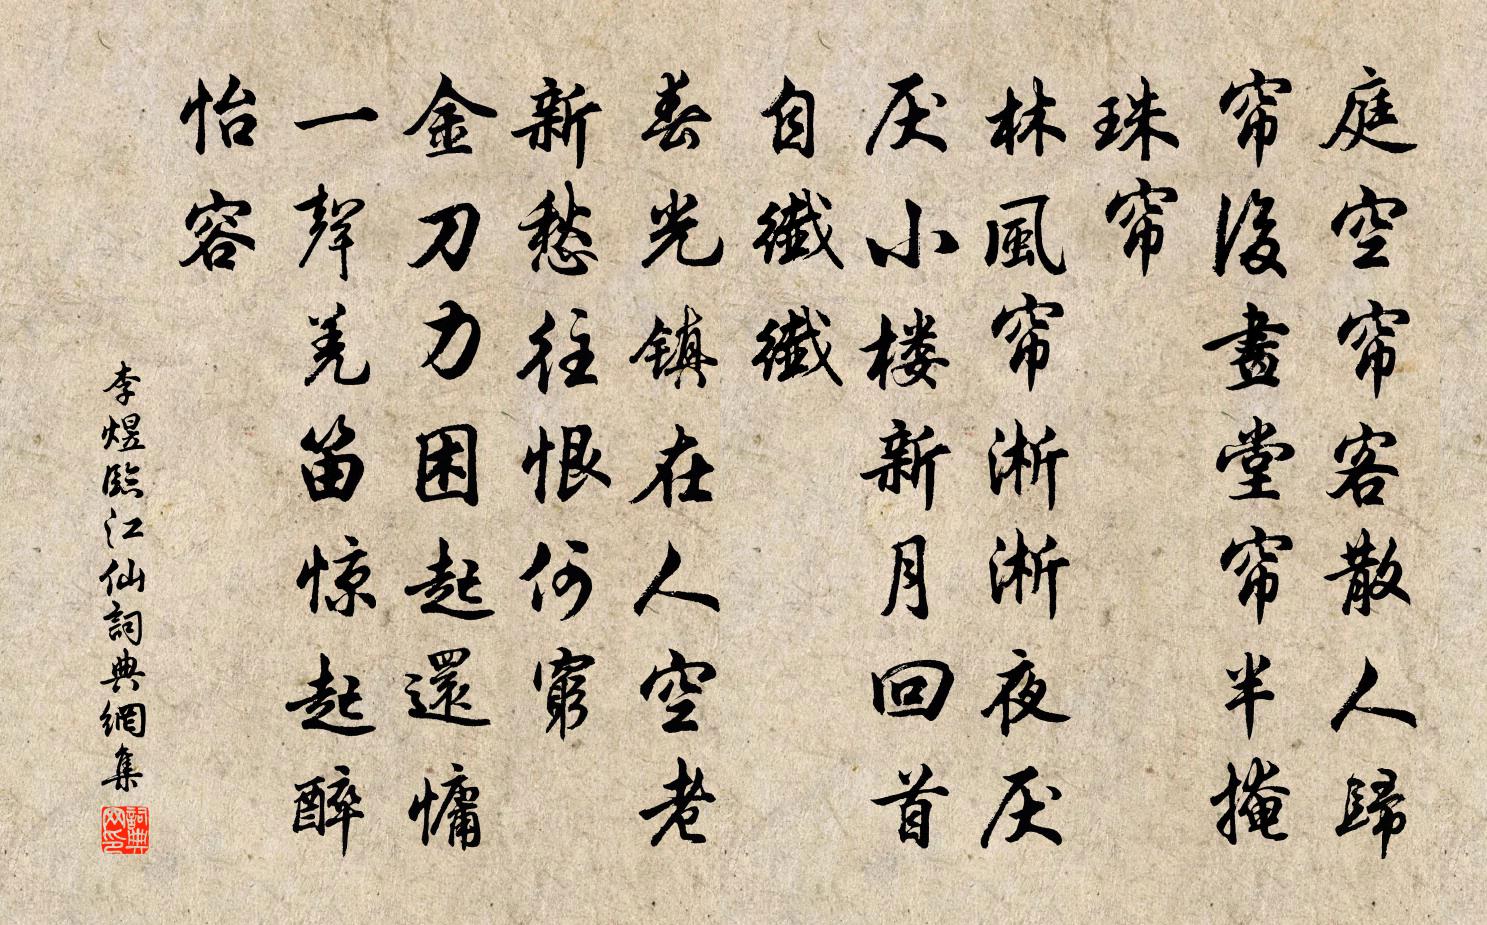 庭空帘客散人歸
帘後畫堂帘半掩
珠帘
林風帘淅淅夜厌
厌小楼新月回首
自纖纖
春光镇在人空老
新愁往恨何窮
金刀力困起還慵
一聲羌笛惊起醉
怡容
李煜臨江仙詞典網集
詞典網印